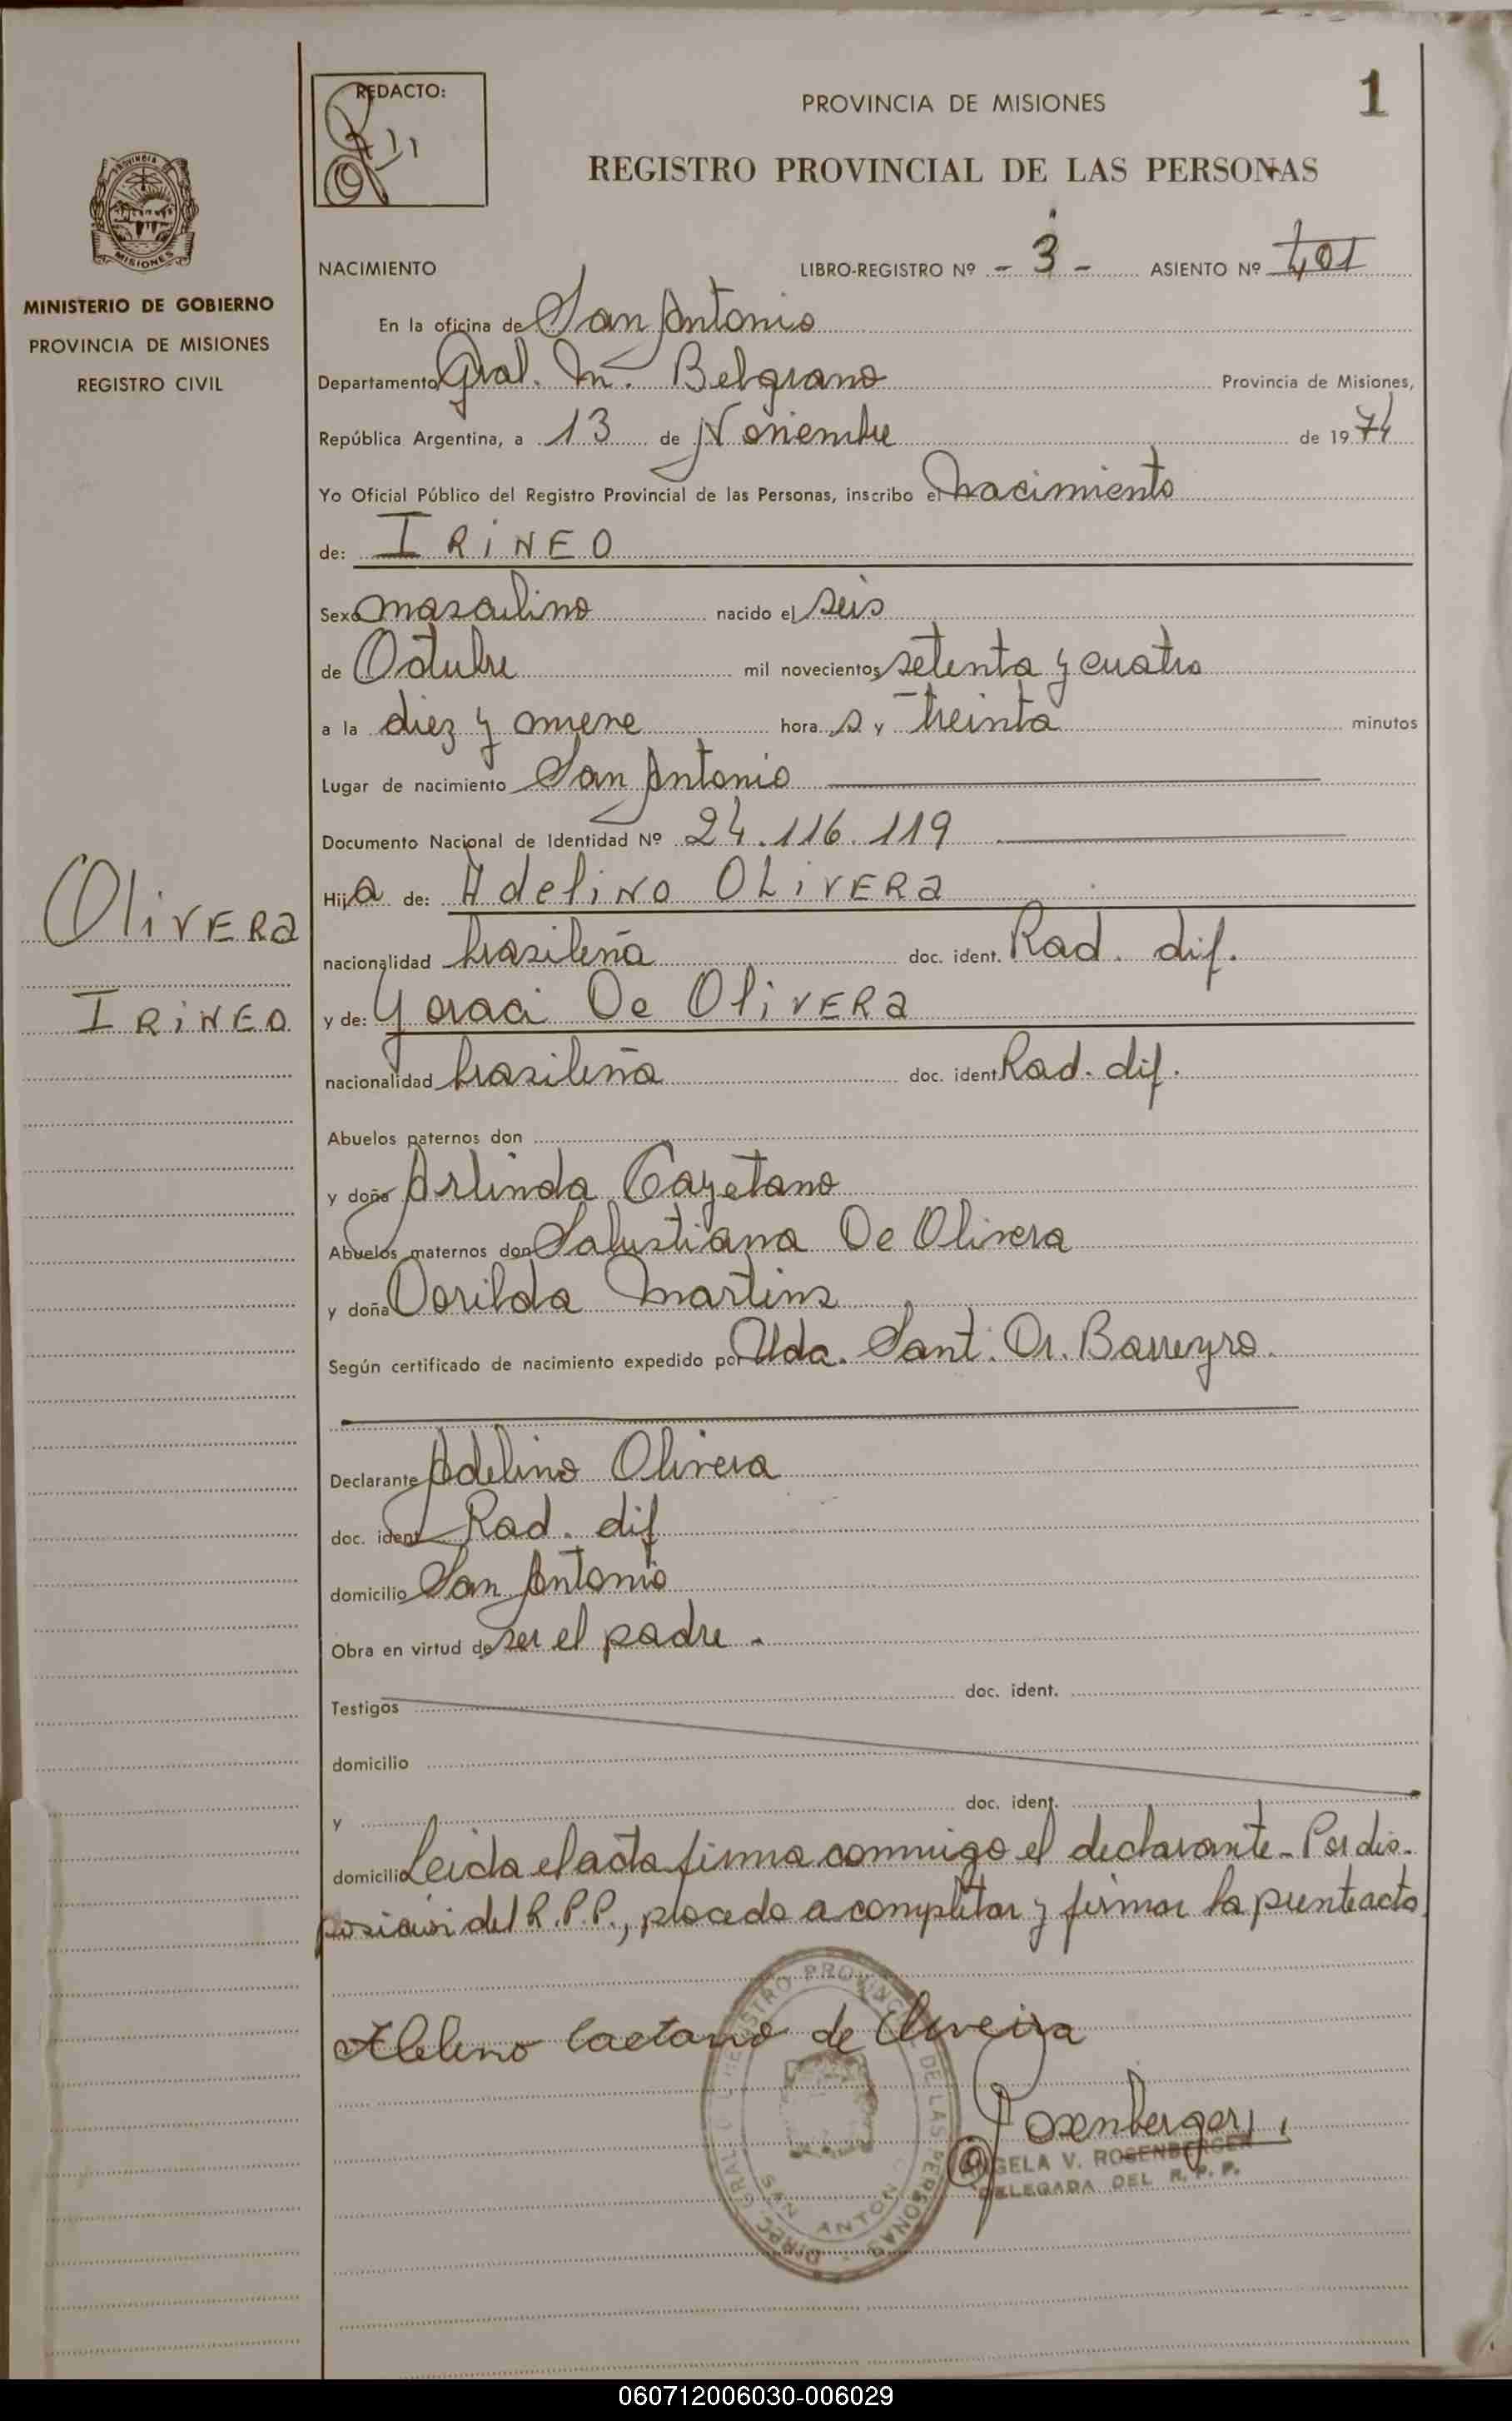 REDACTO:
PROVINCIA DE MISIONES
1
REGISTRO PROVINCIAL DE LAS PERSONAS
PROVINCIA
MISIONES
MINISTERIO DE GOBIERNO
PROVINCIA DE MISIONES
REGISTRO CIVIL
NACIMIENTO LIBRO-REGISTRO Nº - 3 - ASIENTO Nº 401
En la oficina de San Antonio
Departamento Gral. M. Belgrano Provincia de Misiones,
República Argentina, a 13 de Noviembre de 1974
Yo Oficial Público del Registro Provincial de las Personas, inscribo el nacimiento
de: IRiNEO
Sexo masculino nacido el seis
de Octubre mil novecientos setenta y cuatro
a la diez y nueve hora s y treinta minutos
Lugar de nacimiento San Antonio
Documento Nacional de Identidad Nº 24.116.119
Hija de: Adelino OLiVERa
OliVERa
nacionalidad brasileña doc. ident. Rad. dif.
IRiNEO
y de: Yoraci De OliVERa
nacionalidad brasileña doc. ident. Rad. dif.
Abuelos paternos don
y doña Arlinda Cayetano
Abuelos maternos don Salustiana De Olivera
y doña Dorilda Martins
Según certificado de nacimiento expedido por Uda. Sant. Dr. Barreyro.
Declarante Adelino Olivera
doc. ident. Rad. dif
domicilio San Antonio
Obra en virtud de ser el padre.
Testigos doc. ident.
domicilio
y doc. ident.
domicilio Leida el acta firma conmigo el declarante - Por dis-
posición del R.P.P., procedo a completar y firmar la pnte acta
Caetano de Oliveira
Rosenberger
ANGELA V. ROSENBERGER
DELEGADA DEL R. P. P.
DIREC. GRAL. REGISTRO PROVINC. DE LAS PERSONAS
SAN ANTONIO
060712006030-006029